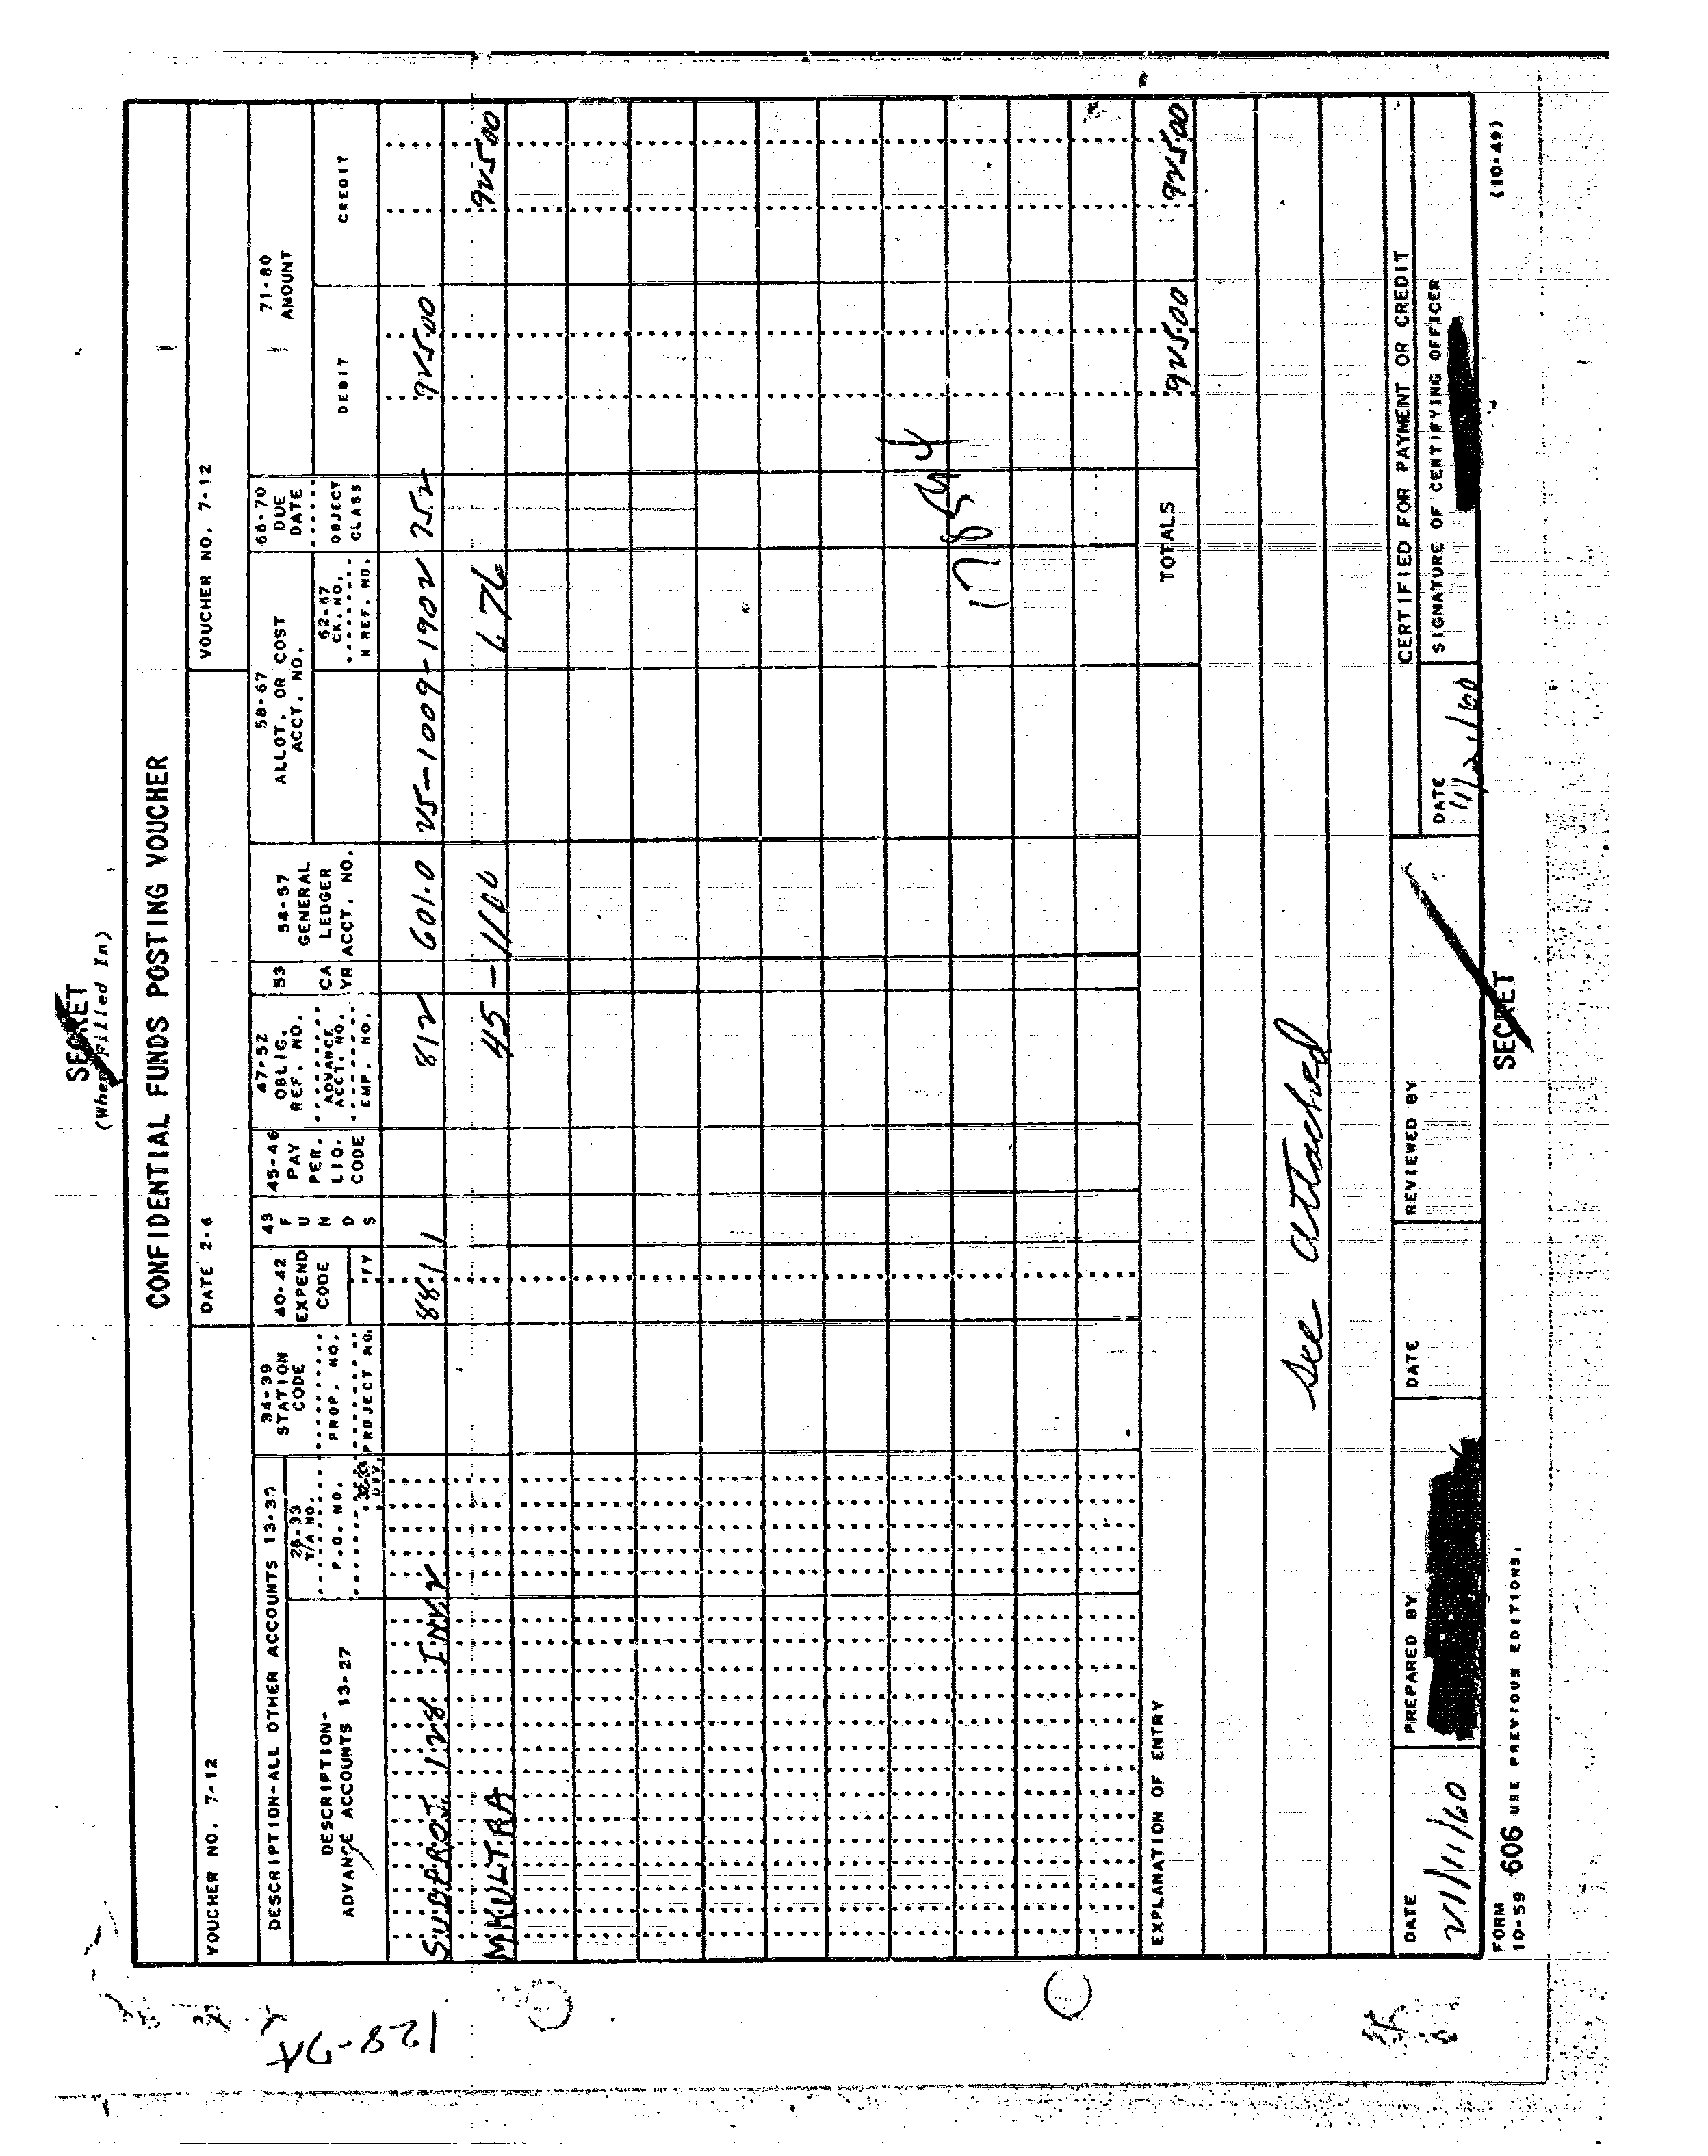 SECRET
(When Filled In)
CONFIDENTIAL FUNDS POSTING VOUCHER
VOUCHER NO. 7-12
DATE 2-6
VOUCHER NO. 7-12
DESCRIPTION-ALL OTHER ACCOUNTS 13-33
DESCRIPTION-
ADVANCE ACCOUNTS 13-27
28-33
T/A NO.
P.O. NO.
34-39
STATION
CODE
PROP. NO.
PROJECT NO.
40-42
EXPEND
CODE
FY
43
F
U
N
D
S
45-46
PAY
PER.
LIQ.
CODE
47-52
OBLIG.
REF. NO.
ADVANCE
ACCT. NO.
EMP. NO.
53
CA
YR
54-57
GENERAL
LEDGER
ACCT. NO.
58-67
ALLOT. OR COST
ACCT. NO.
62-67
CK. NO.
X REF. NO.
68-70
DUE
DATE
OBJECT
CLASS
71-80
AMOUNT
DEBIT
CREDIT
SUBPROJ. 128 INV 2 881 1 812 601.0 25-1009-1902 252 925.00
MKULTRA 45-1100 676 925.00
17854
TOTALS 925.00 925.00
EXPLANATION OF ENTRY
see attached
CERTIFIED FOR PAYMENT OR CREDIT
DATE PREPARED BY DATE REVIEWED BY DATE SIGNATURE OF CERTIFYING OFFICER
FORM
10-59 606 USE PREVIOUS EDITIONS.
SECRET
(10-49)